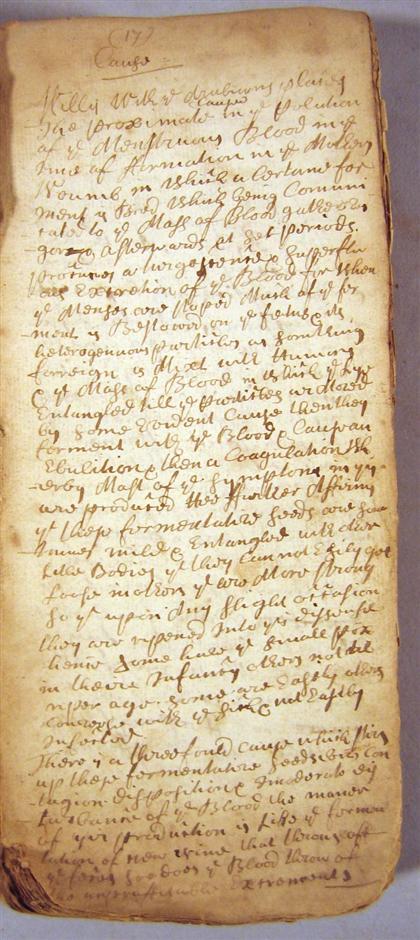 (17)
Cause =
Willis with ye Arabians places
The proximate Cause in ye Polution
of ye Menstruous Blood in ye
time of formation in ye Mothers
Woumb in which a certane fer
ment is Bred which being Comuni
cated to ye Mass of Blood
afterwards at set periods
procures a turgescence & superflu
ous Excretion of ye Blood for when
ye Menses are stoped Much of ye fer
ment is Bestowed on ye fetus & its
heterogenious particles as something
forreign is Mixt with Humours
& ye Mass of Blood in which they
Entangled till ye particles are Moved
by some Evident Cause then they
ferment with ye Blood & Cause an
Ebulition & then a Coagulation wh
erby Most of ye symptoms in ys
are produced he further Affirms
yt these fermentative seeds are som
times mild & Entangled with other
little Bodies yt they Cannot Easily get
loose in others yt are More strong
so yt upon Any slight occasion
they are ripened Into ys disease
hence some have ye small pox
in theire Infancy others not till
riper age some are Easily others
converse with ye sick & not Easily
Infected
There is a threefould cause which stirs
up these fermentative seeds viz Con
tagion disposition & Imoderate dis
turbance of ye Blood the maner
of yir production is Like ye fermen
tation of New wine that throws off
ye feces soe does ye Blood throw of
unprofittable Excrements